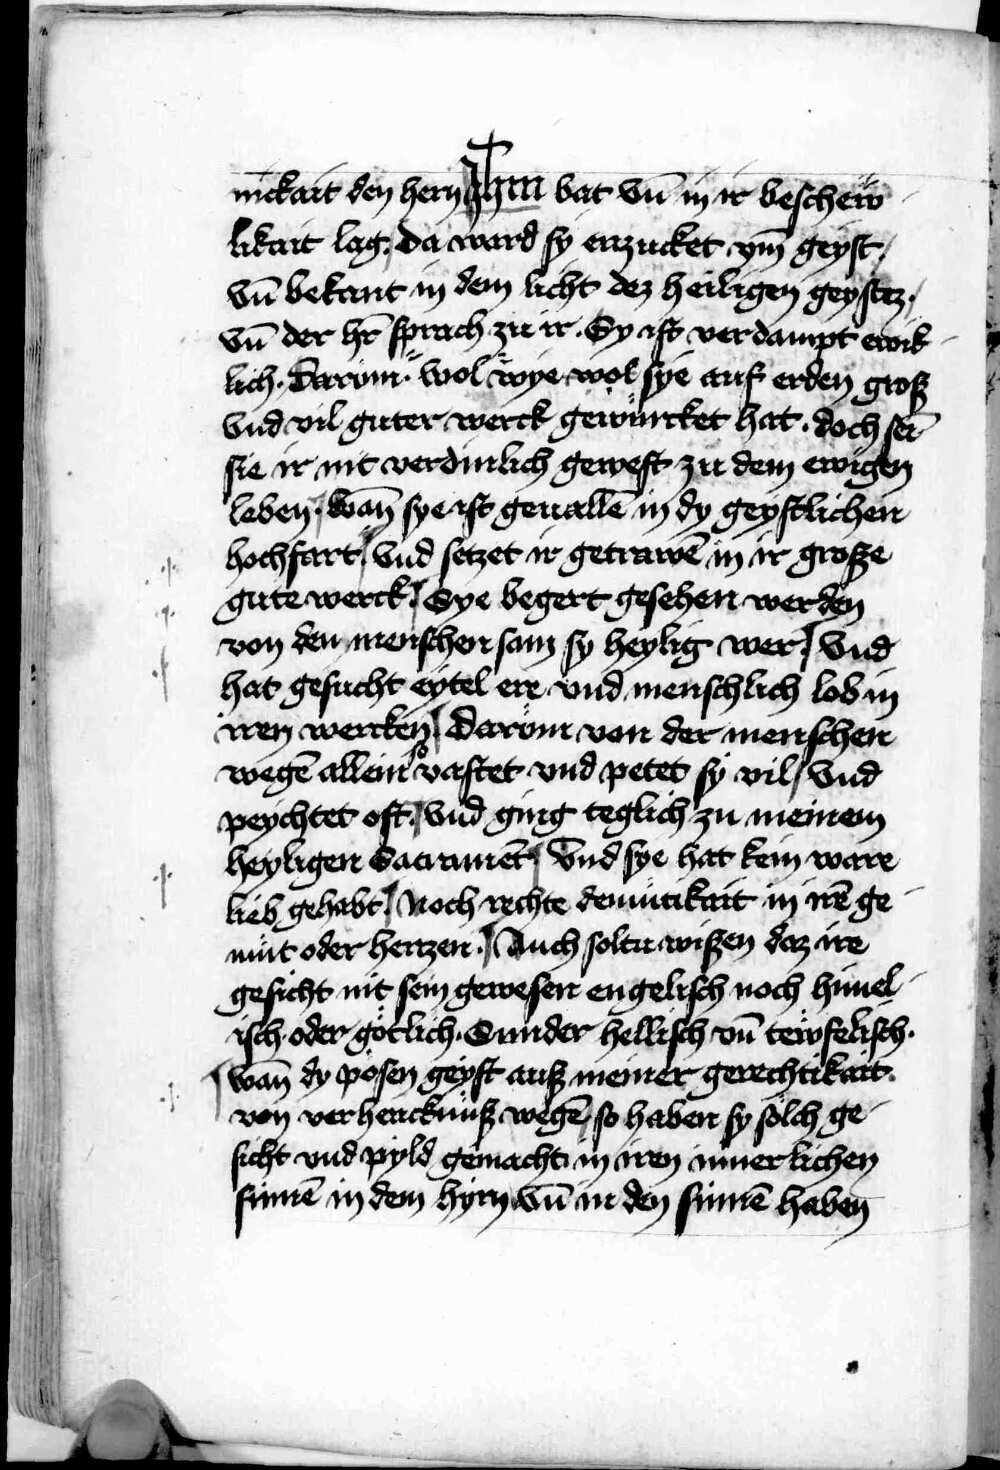 nickait den hern Jhm bat vn̄ in ir bescheẅ
likait lag. Da ward sy enzucket ym̄ geyst /
vn̄ bekant in dem licht dez heiligen geystez.
vn̄ der hr̄ sprach zu ir. Sy ist verdampt ewik
lich. Darüm. wol wye wol sye auf erden groß
vnd vil guter werck gewürcket hat. doch sei
sie ir nit verdinlich gewest zu dem ewigen
leben. wan̄ sye ist geuallē in dy geystlichen
hochfart / vnd setzet ir getrawē in ir große
gute werck. Sye begert gesehen werden
von den menschen sam sy heylig wer / vnd
hat gesucht eytel ere vnd menschlich lob in
iren wercken / Darüm von der menschen
wegē allein so vastet vnd petet sy vil / vnd
peychtet oft. vnd ging teglich zu meinem
heyligen Sacramēt / vnd sye hat kein ware
lieb gehabt. Noch rechte demütikait in irē ge
müt oder hertzen. Auch soltu wißen daz ire
gesicht nit sein gewesen engelisch noch himel
isch oder götlich. Sunder hellisch vn̄ tewfelisch.
wan̄ dy pösen geyst auß meiner gerechtikait.
von verhencknüß wegē / so haben sy sölch ge
sicht vnd pyld gemacht in iren innerlichen
sinnē in dem hyrn vn̄ in den sinnē haben